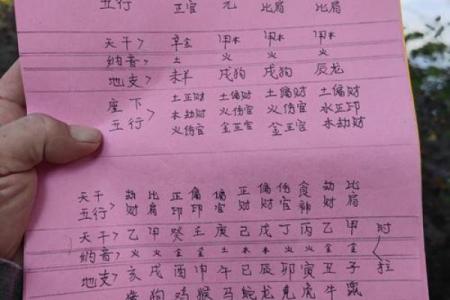 五行 正官 元 比肩 比肩
天干> 辛金 甲木 甲木 甲木
纳音> 土 火 火 火
地支> 未羊 戌狗 戌狗 辰龙
座下 土正财 土偏财 土偏财 土偏财
木劫财 火伤官 火伤官 水正印
五行> 火伤官 金正官 金正官 木劫财
天干 劫 比 正 偏 偏 正 偏 伤 食 劫 比
五行> 财 肩 印 印 官 财 财 官 神 财 肩
天干> 乙 甲 癸 壬 庚 己 戊 丁 丙 乙 甲 时
纳音> 火 火 金 金 土 木 木 火 火 金 金
地支> 亥 戌 酉 申 午 巳 辰 卯 寅 丑 子 柱
狗 鸡 猴 马 蛇 龙 兔 虎 牛 鼠